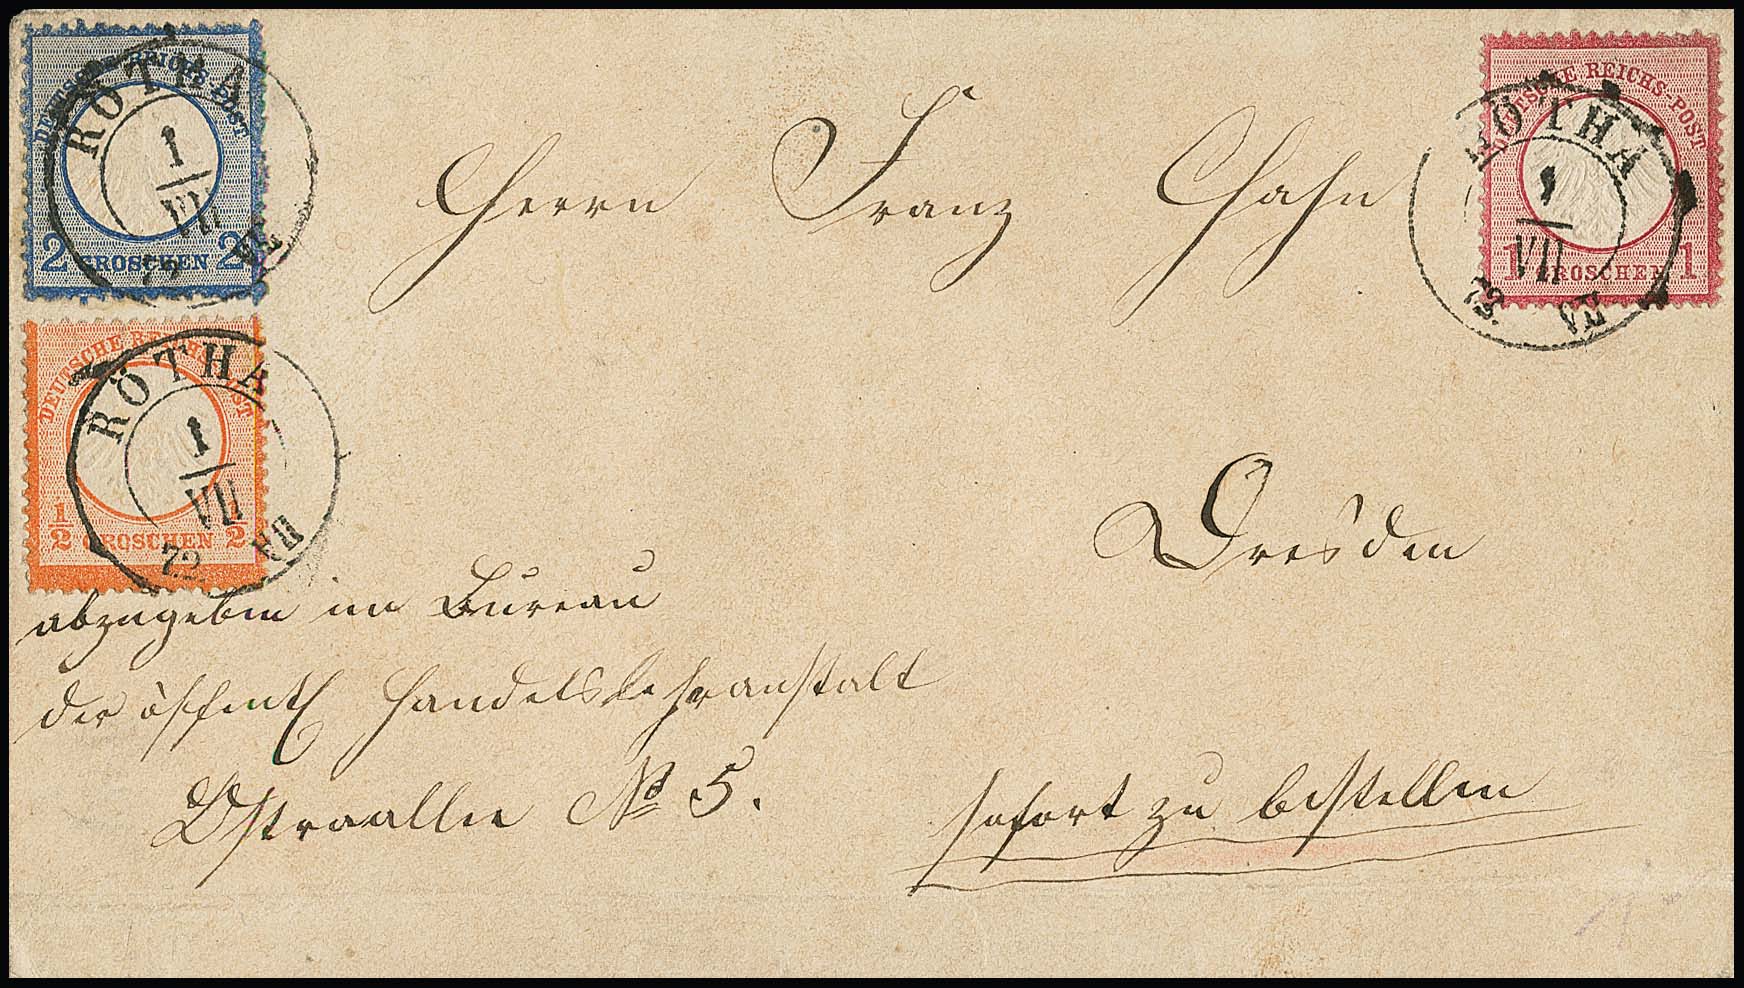 DEUTSCHE REICHS-POST
2 GROSCHEN 2
RÖTHA
1
VII
72
DEUTSCHE REICHS-POST
1/2 GROSCHEN 1/2
RÖTHA
1
VII
72
DEUTSCHE REICHS-POST
1 GROSCHEN 1
RÖTHA
1
VII
72.
Herrn Franz Hahn
Dresden
abzugeben im Bureau
der öffentl Handelslehranstalt
Ostraallee No 5.
sofort zu bestellen